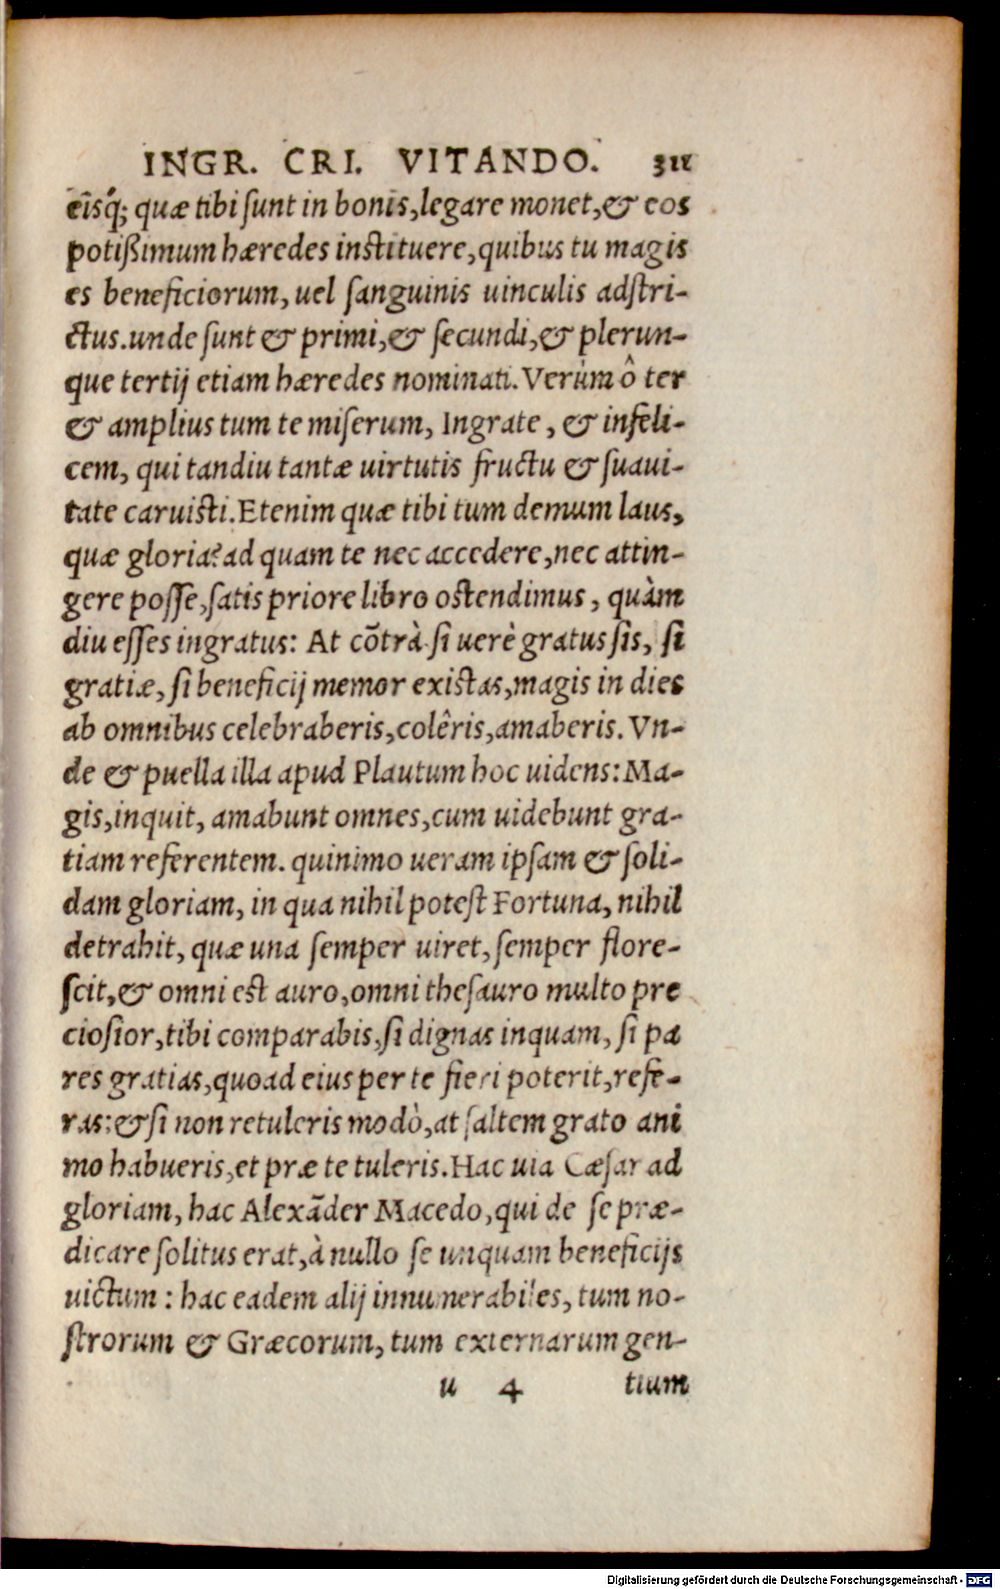 INGR. CRI. VITANDO. 311
eisq́; quæ tibi sunt in bonis, legare monet, & eos
potißimum hæredes instituere, quibus tu magis
es beneficiorum, uel sanguinis uinculis adstri-
ctus. unde sunt & primi, & secundi, & plerun-
que tertij etiam hæredes nominati. Verùm ô ter
& amplius tum te miserum, Ingrate, & infeli-
cem, qui tandiu tantæ uirtutis fructu & suaui-
tate caruisti. Etenim quæ tibi tum demum laus,
quæ gloria? ad quam te nec accedere, nec attin-
gere posse, satis priore libro ostendimus, quàm
diu esses ingratus: At cõtrà si uerè gratus sis, si
gratiæ, si beneficij memor existas, magis in dies
ab omnibus celebraberis, colêris, amaberis. Vn-
de & puella illa apud Plautum hoc uidens: Ma-
gis, inquit, amabunt omnes, cum uidebunt gra-
tiam referentem. quinimo ueram ipsam & soli-
dam gloriam, in qua nihil potest Fortuna, nihil
detrahit, quæ una semper uiret, semper flore-
scit, & omni est auro, omni thesauro multo pre
ciosior, tibi comparabis, si dignas inquam, si pa
res gratias, quoad eius per te fieri poterit, refe-
ras: & si non retuleris modò, at saltem grato ani
mo habueris, et præ te tuleris. Hac uia Cæsar ad
gloriam, hac Alexãder Macedo, qui de se præ-
dicare solitus erat, à nullo se unquam beneficijs
uictum: hac eadem alij innumerabiles, tum no-
strorum & Græcorum, tum externarum gen-
u 4 tium
Digitalisierung gefördert durch die Deutsche Forschungsgemeinschaft - DFG